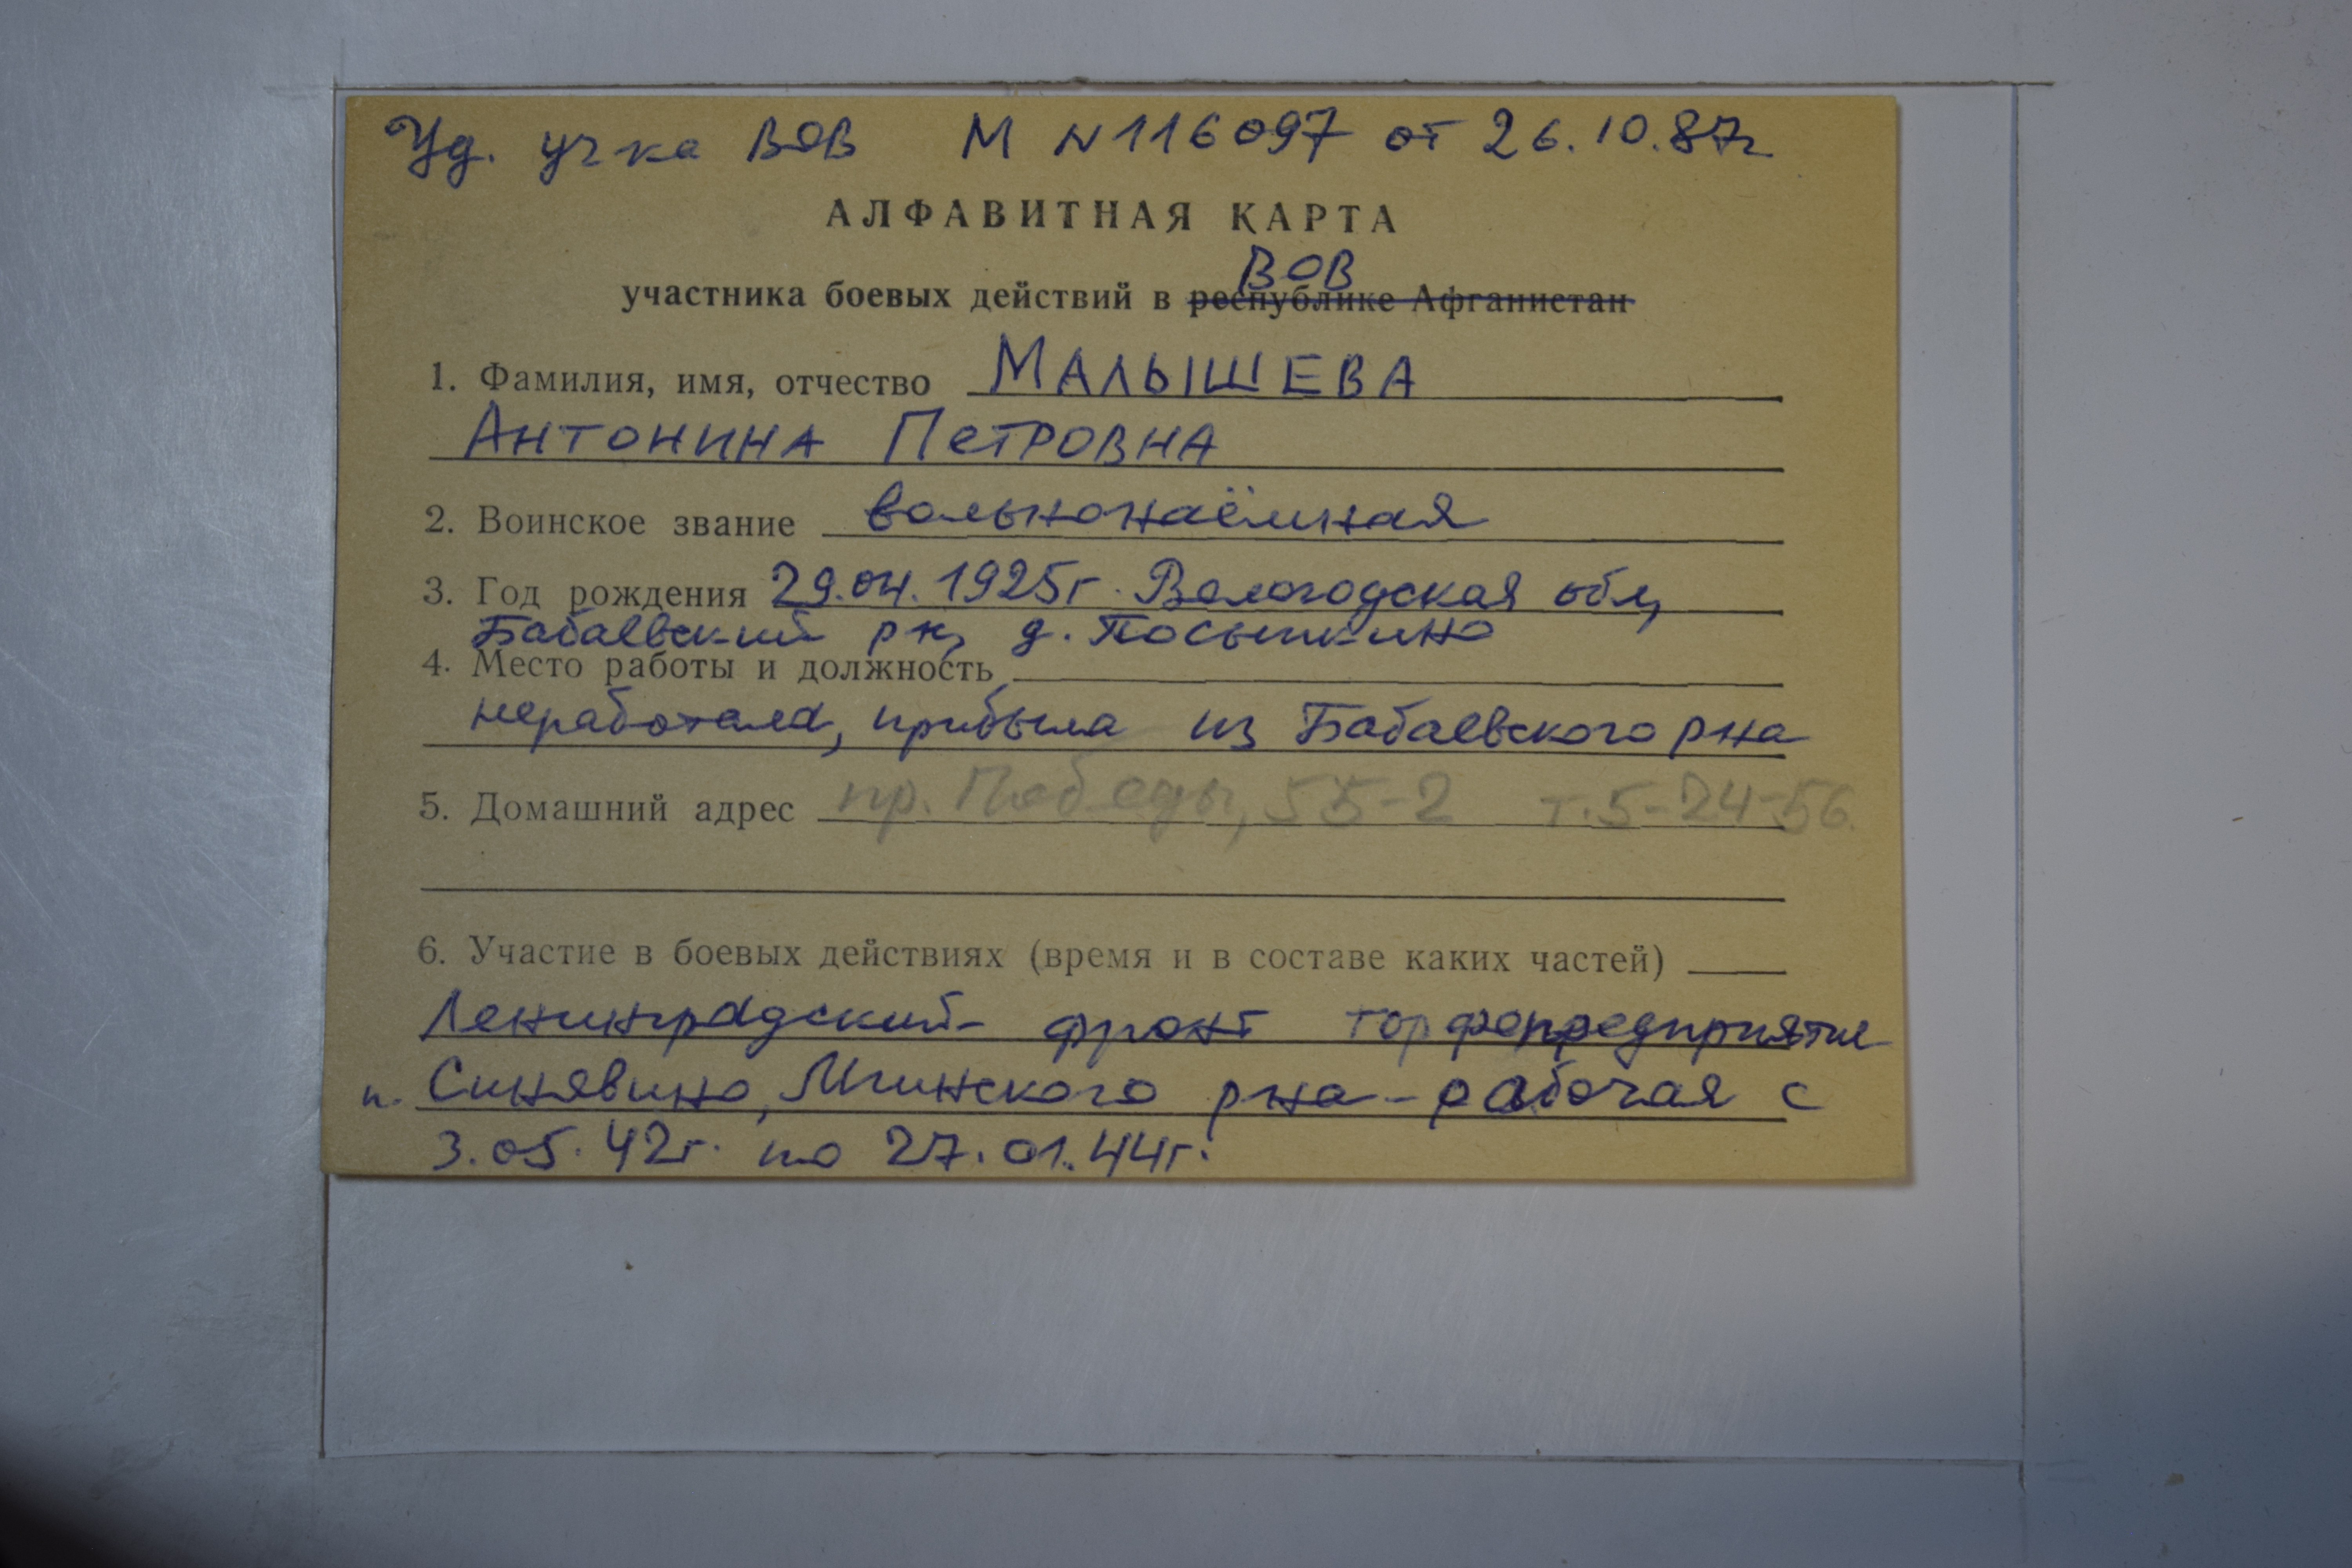 Уд. уч-ка ВОВ М N116097 от 26.10.87г
АЛФАВИТНАЯ КАРТА
ВОВ
участника боевых действий в республике Афганистан
1. Фамилия, имя, отчество МАЛЫШЕВА
АНТОНИНА ПЕТРОВНА
2. Воинское звание вольнонаёмная
3. Год рождения 29.04.1925г. Вологодская обл,
Бабаевский рн, д. Посыпкино
4. Место работы и должность
неработала, прибыла из Бабаевского рна
5. Домашний адрес пр. Победы, 55-2 т.5-24-56.
6. Участие в боевых действиях (время и в составе каких частей)
Ленинградский фронт торфопредприятие
п. Синявино, Мгинского рна - рабочая с
3.05.42г. по 27.01.44г.